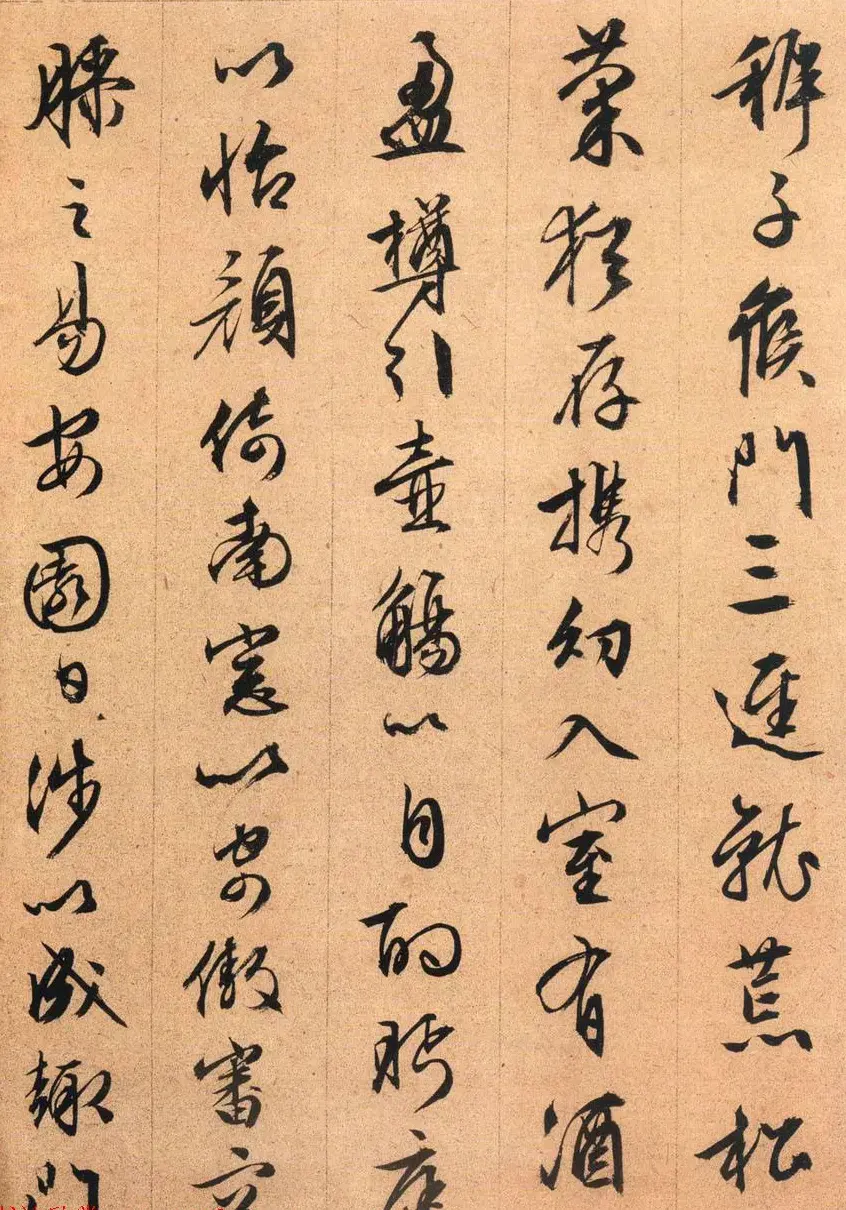 稚子候門三逕就荒松
菊猶存携幼入室有酒
盈樽引壺觴以自酌眄庭
以怡顏倚南窓以寄傲審容
膝之易安園日涉以成趣門